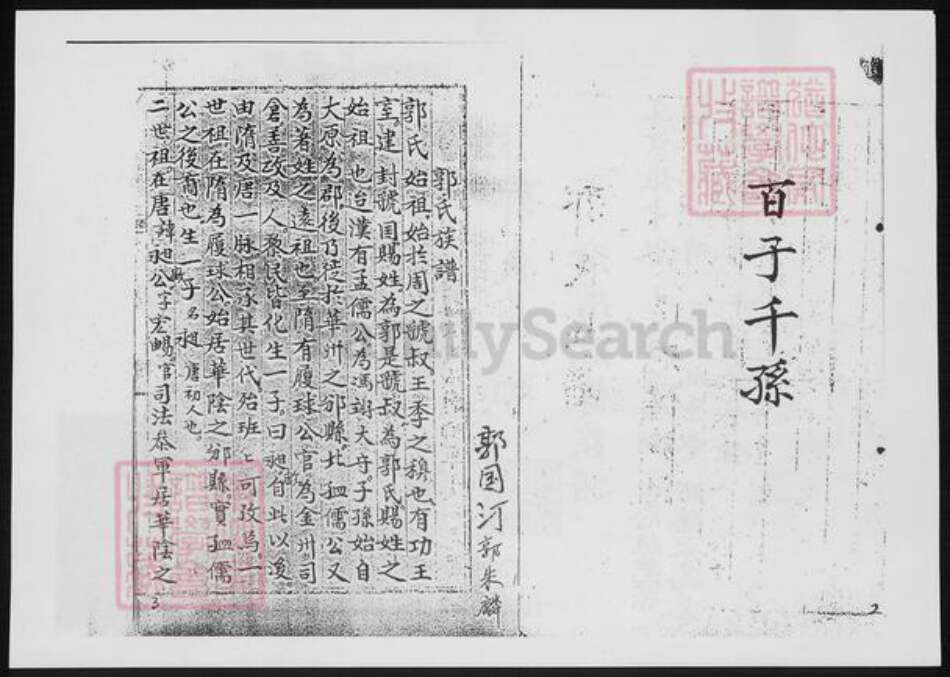 百子千孫
2
郭国河 郭朱麟
郭氏族譜
郭氏始祖始於周之虢叔王季之穆也有功王
室建封虢国賜姓為郭是虢叔為郭氏賜姓之
始祖也迨漢有孟儒公為馮翊大守子孫始自
大原為郡後乃徙於華州之邠縣北孟儒公又
為著姓之遠祖也至隋有履球公官為金州司
倉善政及人黎民皆化生一子曰昶自此以後
由隋及唐一脉相承其世代殆班々可攷焉一
世祖在隋為履球公始居華陰之邠縣實孟儒
公之後裔也生一子名昶唐初人也
二世祖在唐諱昶公字宏暢官司法叅軍居華陰之
3
FamilySearch